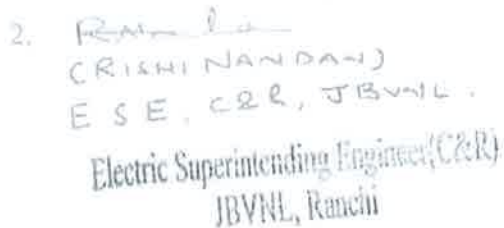 2.
(RISHI NANDAN)
E S E. C&R, JBVNL.
Electric Superintending Engineer(C&R)
JBVNL, Ranchi